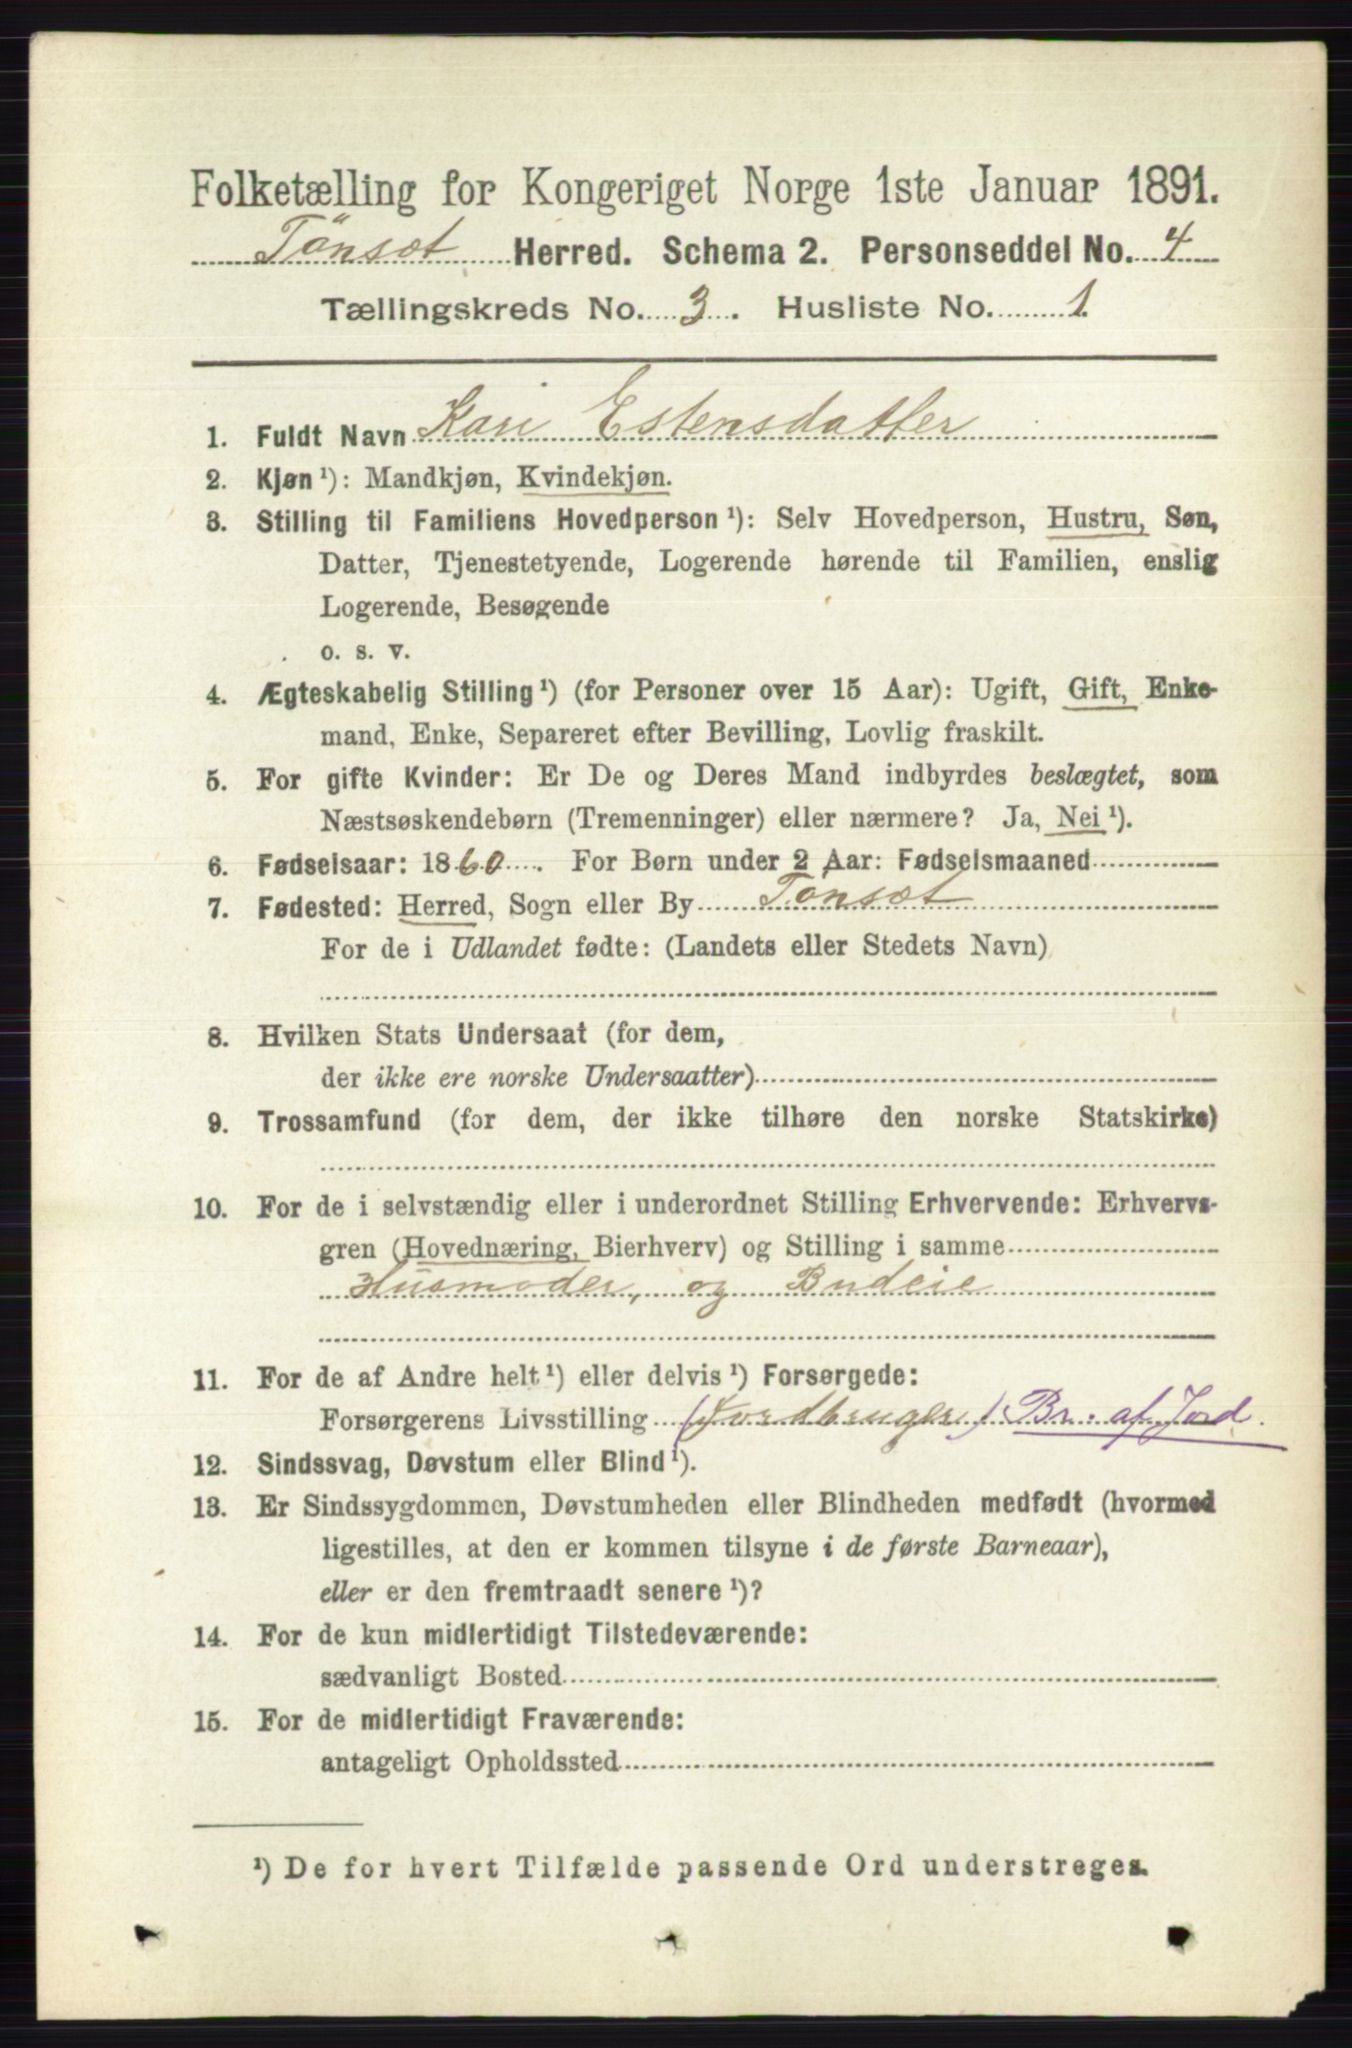 Folketælling for Kongeriget Norge 1ste Januar 1891.
Tönset Herred. Schema 2. Personseddel No. 4
Tællingskreds No. 3. Husliste No. 1.
1. Fuldt Navn Kari Estensdatter
2. Kjøn¹): Mandkjøn, Kvindekjøn.
3. Stilling til Familiens Hovedperson¹): Selv Hovedperson, Hustru, Søn,
Datter, Tjenestetyende, Logerende hørende til Familien, enslig
Logerende, Besøgende
o. s. v.
4. Ægteskabelig Stilling¹) (for Personer over 15 Aar): Ugift, Gift, Enke-
mand, Enke, Separeret efter Bevilling, Lovlig fraskilt.
5. For gifte Kvinder: Er De og Deres Mand indbyrdes beslægtet, som
Næstsøskendebørn (Tremenninger) eller nærmere? Ja, Nei¹).
6. Fødselsaar: 1860. For Børn under 2 Aar: Fødselsmaaned
7. Fødested: Herred, Sogn eller By Tönset
For de i Udlandet fødte: (Landets eller Stedets Navn)
8. Hvilken Stats Undersaat (for dem,
der ikke ere norske Undersaatter)
9. Trossamfund (for dem, der ikke tilhøre den norske Statskirke)
10. For de i selvstændig eller i underordnet Stilling Erhvervende: Erhvervs-
gren (Hovednæring, Bierhverv) og Stilling i samme
Husmoder, og Budeie
11. For de af Andre helt¹) eller delvis¹) Forsørgede:
Forsørgerens Livsstilling (Jordbruger) Br. af Jord.
12. Sindssvag, Døvstum eller Blind¹).
13. Er Sindssygdommen, Døvstumheden eller Blindheden medfødt (hvormed
ligestilles, at den er kommen tilsyne i de første Barneaar),
eller er den fremtraadt senere¹)?
14. For de kun midlertidigt Tilstedeværende:
sædvanligt Bosted
15. For de midlertidigt Fraværende:
antageligt Opholdssted
¹) De for hvert Tilfælde passende Ord understreges.